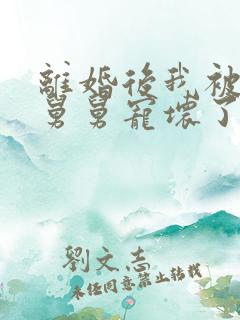 離婚後我被
舅舅寵壞了
劉文志
未經同意禁止轉載